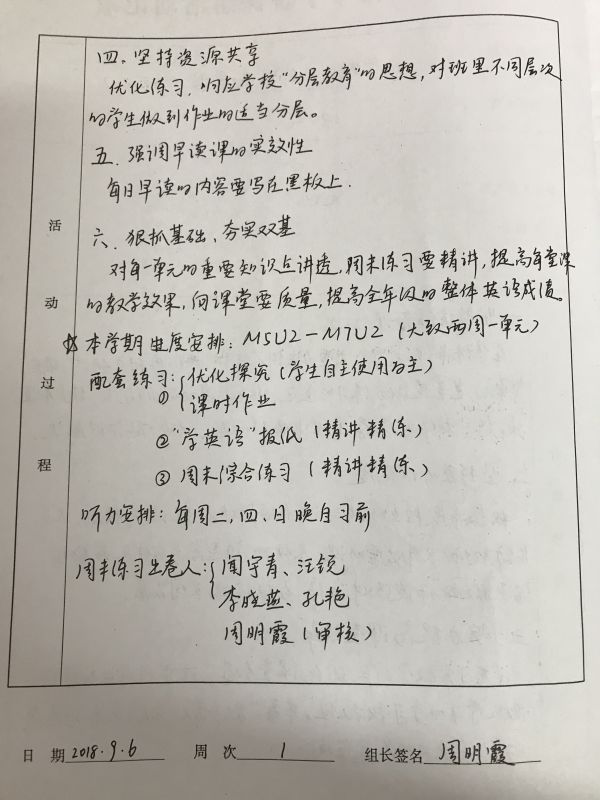 四、坚持资源共享
优化练习，响应学校“分层教育”的思想，对班里不同层次
的学生做到作业的适当分层。
五、强调早读课的实效性
每日早读的内容要写在黑板上.
六、狠抓基础、夯实双基
对每一单元的重要知识点讲透，周末练习要精讲，提高每堂课
的教学效果，向课堂要质量，提高全年级的整体英语成绩。
本学期进度安排：M5U2－M7U2（大致两周一单元）
配套练习：①优化探究（学生自主使用为主）
课时作业
②“学英语”报纸（精讲精练）
③周末综合练习（精讲精练）
听力安排：每周二，四、日晚自习前
周末练习出卷人：闻宇青、汪锐
李晓燕、孔艳
周明霞（审核）
活动过程
日 期 2018.9.6 周 次 1 组长签名 周明霞